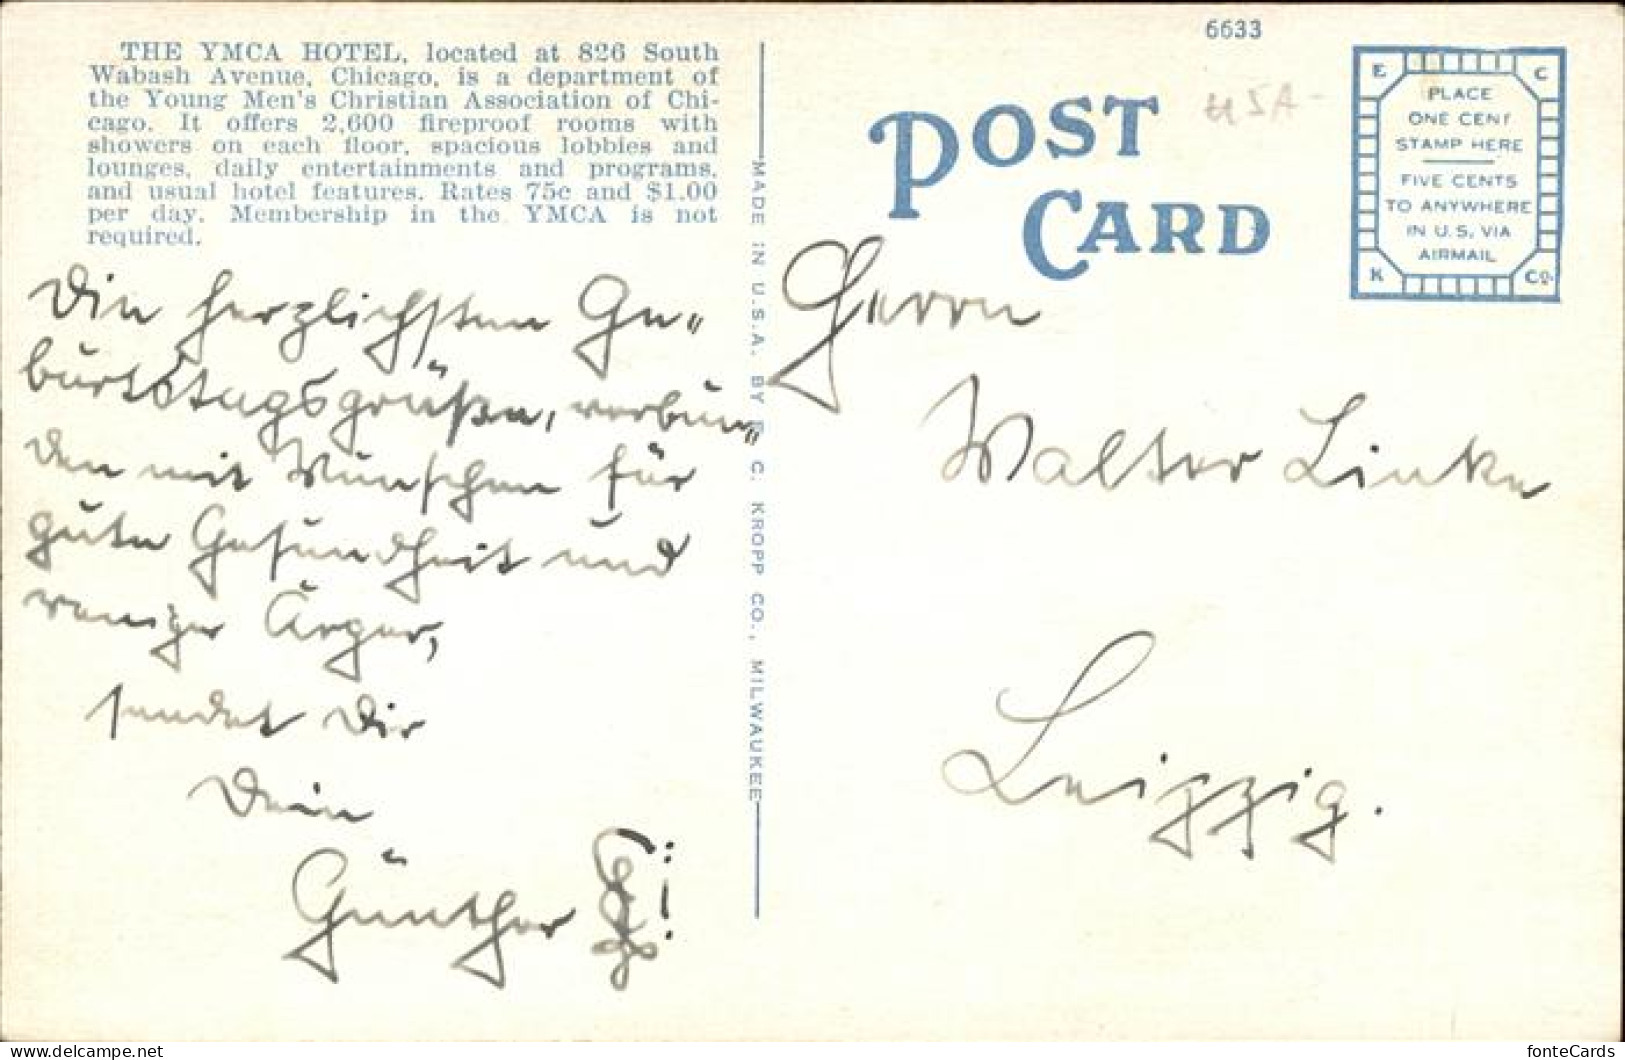 THE YMCA HOTEL, located at 826 South
Wabash Avenue, Chicago, is a department of
the Young Men's Christian Association of Chi-
cago. It offers 2,600 fireproof rooms with
showers on each floor, spacious lobbies and
lounges, daily entertainments and programs,
and usual hotel features. Rates 75c and $1.00
per day. Membership in the YMCA is not
required.
Die herzlichsten Ge=
burtstagsgrüße, verbun=
den mit Wünschen für
gute Gesundheit und
wenig Ärger,
sendet Dir
Dein
Günther
MADE IN U.S.A. BY E. C. KROPP CO., MILWAUKEE
6633
USA-
POST
CARD
E C
PLACE
ONE CENT
STAMP HERE
FIVE CENTS
TO ANYWHERE
IN U.S. VIA
AIRMAIL
K Co.
Herrn
Walter Linke
Leipzig.
www.delcampe.net
fonteCards